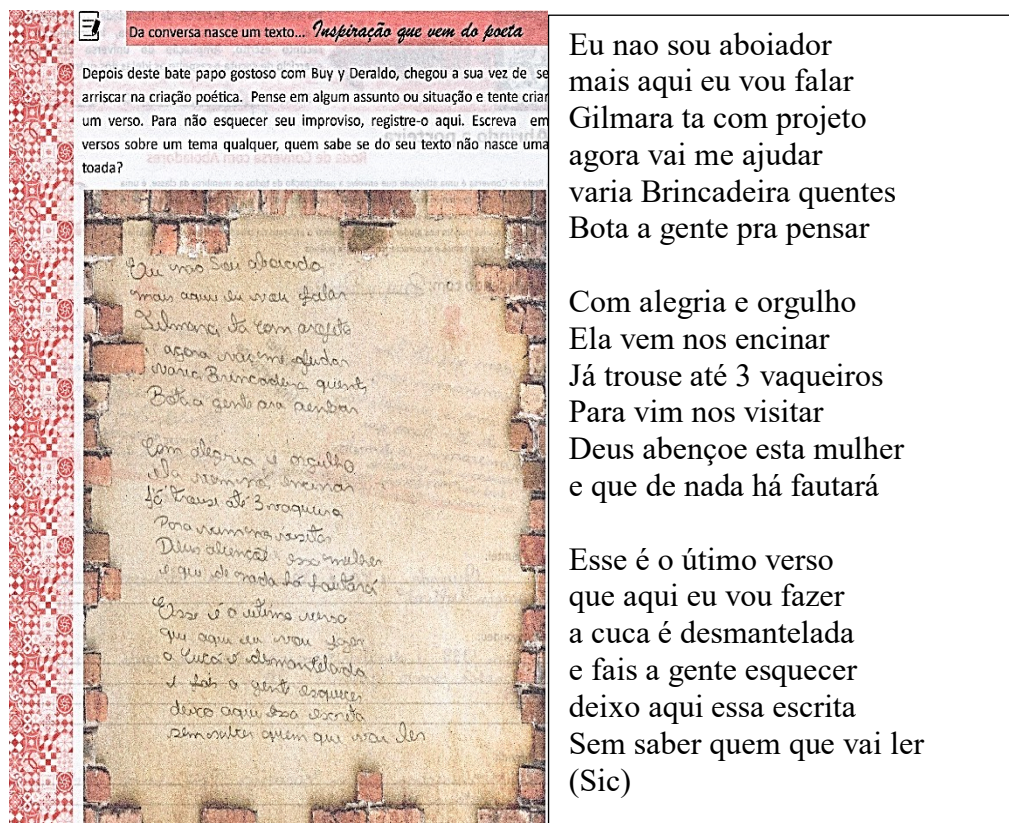 Da conversa nasce um texto... Inspiração que vem do poeta
Depois deste bate papo gostoso com Buy y Deraldo, chegou a sua vez de se
arriscar na criação poética. Pense em algum assunto ou situação e tente criar
um verso. Para não esquecer seu improviso, registre-o aqui. Escreva em
versos sobre um tema qualquer, quem sabe se do seu texto não nasce uma
toada?
Eu nao Sou aboiado
mais aqui eu vou falar
Gilmara ta com projeto
agora vai me ajudar
varia Brincadeira quent
Bota a gente pra pensar
Com alegria e orgulho
ela vem nos encinar
Já trouse até 3 vaqueiro
Para vim nos visitar
Deus abençoe essa mulher
e que de nada há fautará
Esse é o utimo verso
que aqui eu vou fazer
a cuca é desmantelada
e fais a gente esquecer
deixo aqui essa escrita
sem saber quem que vai ler
Eu nao sou aboiador
mais aqui eu vou falar
Gilmara ta com projeto
agora vai me ajudar
varia Brincadeira quentes
Bota a gente pra pensar
Com alegria e orgulho
Ela vem nos encinar
Já trouse até 3 vaqueiros
Para vim nos visitar
Deus abençoe esta mulher
e que de nada há fautará
Esse é o útimo verso
que aqui eu vou fazer
a cuca é desmantelada
e fais a gente esquecer
deixo aqui essa escrita
Sem saber quem que vai ler
(Sic)